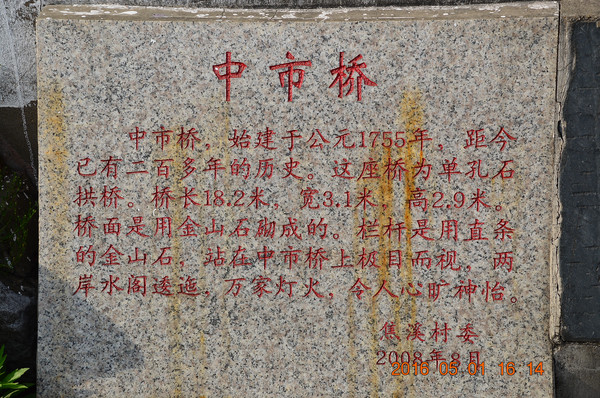 中市桥
中市桥，始建于公元1755年，距今
已有二百多年的历史。这座桥为单孔石
拱桥。桥长18.2米，宽3.1米，高2.9米。
桥面是用金山石砌成的。栏杆是用直条
的金山石，站在中市桥上极目而视，两
岸水阁逶迤，万家灯火，令人心旷神怡。
焦溪村委
2008年8月
2016 05 01 16 14